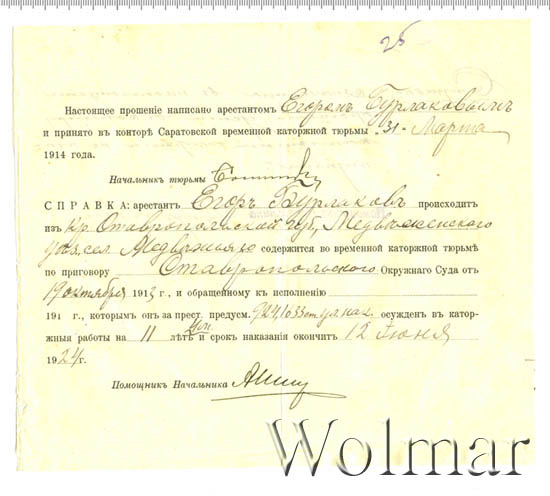 25
Настоящее прошеніе написано арестантомъ Егоромъ Бурлаковымъ
и принято въ конторѣ Саратовской временной каторжной тюрьмы „31" Марта
1914 года.
Начальник тюрьмы
СПРАВКА: арестантъ Егоръ Бурлаковъ происходитъ
изъ кр. Ставропольской губ., Медвѣженскаго
уѣз. сел. содержится во временной каторжной тюрьмѣ
по приговору Ставропольскаго Окружнаго Суда отъ
19 октября 1913 г., и обращенному къ исполненію
191 г., которымъ онъ за прест. предусм. 924, 1633 ст. ул. нак. осужденъ въ катор-
жныя работы на 11 лѣтъ и срокъ наказанія окончитъ 12 Іюня
1924 г.
Помощникъ Начальника
Wolmar